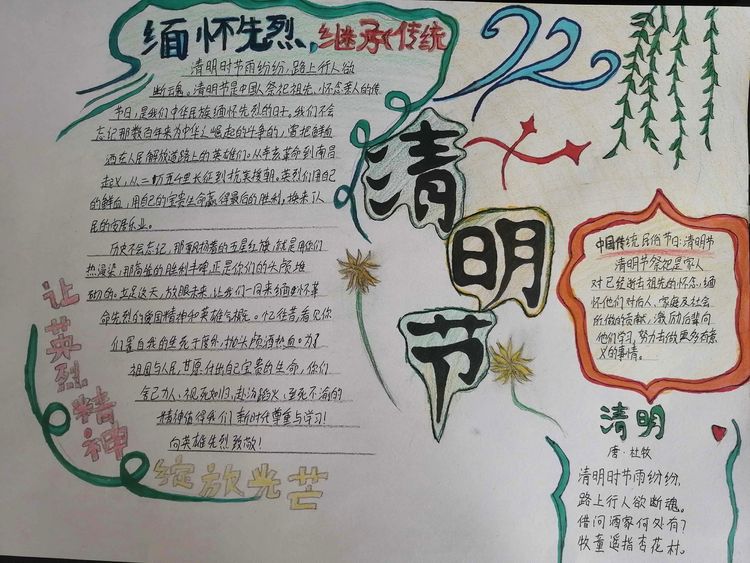 缅怀先烈，继承传统
清明时节雨纷纷，路上行人欲
断魂。清明节是中国人祭祀祖先、怀念亲人的传
节日，是我们中华民族缅怀先烈的日子。我们不会
忘记那数百年来为中华之崛起的斗争的，害把鲜血
洒在人民解放道路上的英雄们。从辛亥革命到南昌
起义，从二万五千里长征到抗美援朝。英烈们用自己
的鲜血，用自己的宝贵生命赢得最后的胜利，换来了人
民的安居乐业。
历史不会忘记，那飘扬着的五星红旗，就是用你们
热浸染，那高傲的胜利丰碑正是你们的头颅堆
砌的。立足今天，放眼未来，让我们一同来缅怀革
命先烈的爱国精神和英雄气概。忆往昔，看见你
们置自我的生死于度外，抛头颅洒热血。为了
祖国与人民，甘愿付出自己宝贵的生命，你们
舍己为人、视死如归，赴汤蹈火、至死不渝的
精神值得我们新时代尊重与学习！
向英雄先烈致敬！
让英烈精神
绽放光芒
清明节
中国传统民俗节日：清明节
清明节祭祀是家人
对已经逝去祖先的怀念，缅
怀他们对后人、家庭及社会
所做的贡献，激励后辈向
他们学习，努力去做更多有意
义的事情。
清明
唐·杜牧
清明时节雨纷纷，
路上行人欲断魂。
借问酒家何处有？
牧童遥指杏花村。